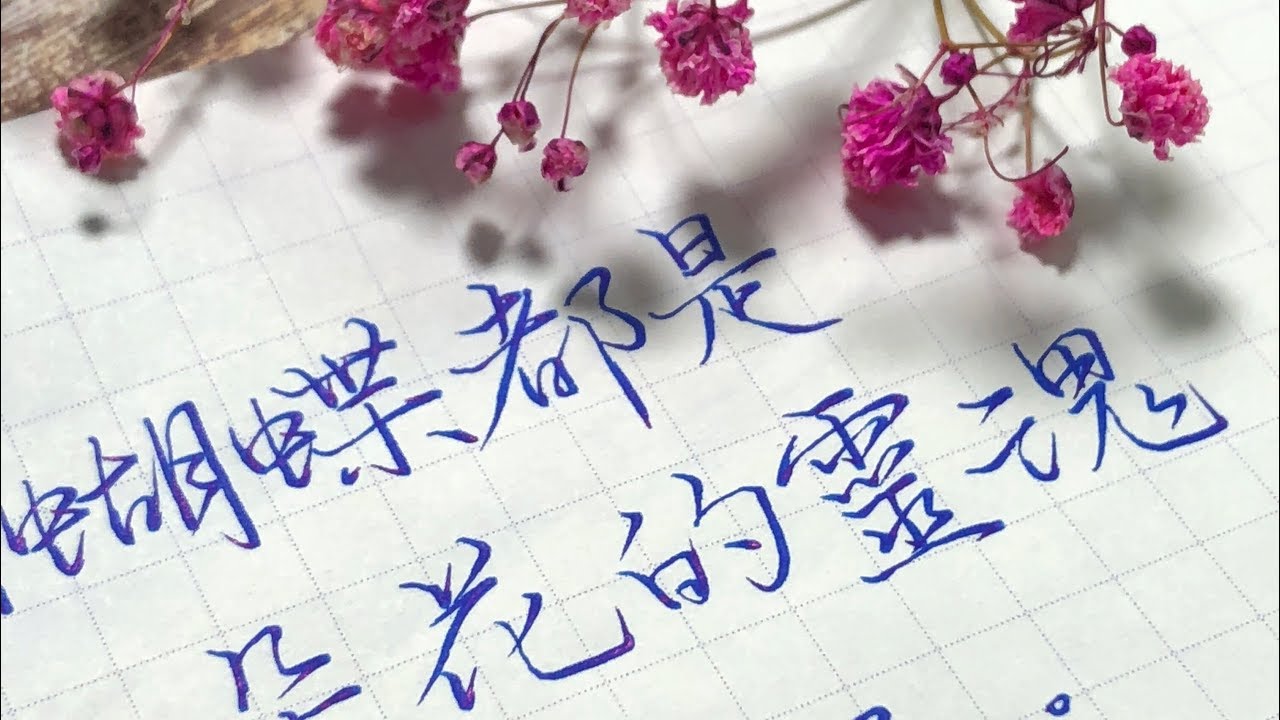 蝴蝶都是
朵花的靈魂